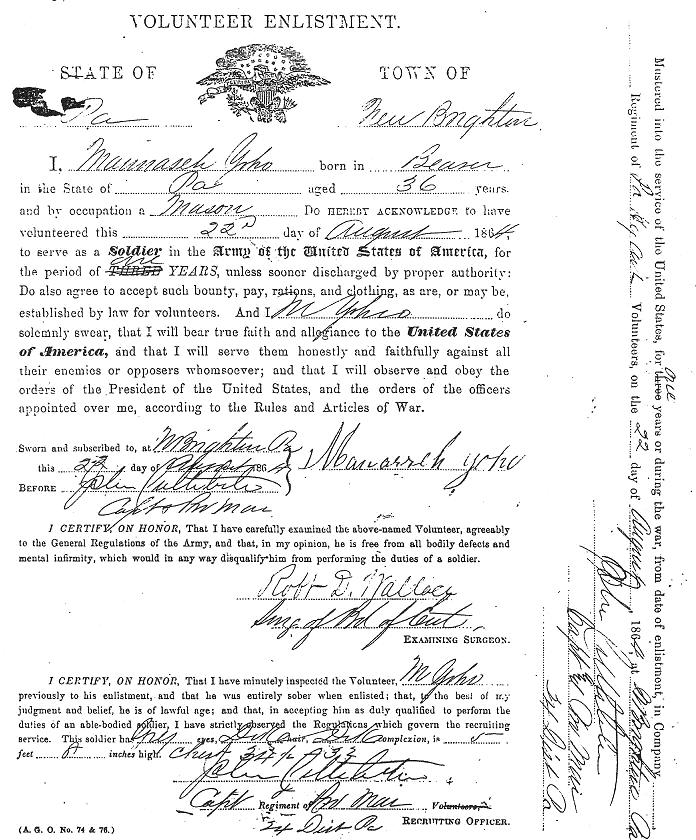 VOLUNTEER ENLISTMENT.
STATE OF TOWN OF
Pa New Brighton
I, Mannaseh Yoho born in Beaver
in the State of Pa aged 36 years.
and by occupation a Mason Do HEREBY ACKNOWLEDGE to have
volunteered this 22d day of August 1864,
to serve as a Soldier in the Army of the United States of America, for
one
the period of THREE YEARS, unless sooner discharged by proper authority:
Do also agree to accept such bounty, pay, rations, and clothing, as are, or may be,
established by law for volunteers. And I M Yoho do
solemnly swear, that I will bear true faith and allegiance to the United States
of America, and that I will serve them honestly and faithfully against all
their enemies or opposers whomsoever; and that I will observe and obey the
orders of the President of the United States, and the orders of the officers
appointed over me, according to the Rules and Articles of War.
Sworn and subscribed to, at N Brighton Pa
this 22 day of August 1864
Manasseh Yoho
BEFORE John
Capt & Pro Mar
I CERTIFY, ON HONOR, That I have carefully examined the above-named Volunteer, agreeably
to the General Regulations of the Army, and that, in my opinion, he is free from all bodily defects and
mental infirmity, which would in any way disqualify him from performing the duties of a soldier.
Robt D. Wallace
Surg. of Bd of Enr
EXAMINING SURGEON.
I CERTIFY, ON HONOR, That I have minutely inspected the Volunteer, M Yoho
previously to his enlistment, and that he was entirely sober when enlisted; that, to the best of my
judgment and belief, he is of lawful age; and that, in accepting him as duly qualified to perform the
duties of an able-bodied soldier, I have strictly observed the Regulations which govern the recruiting
service. This soldier has Grey eyes, hair, complexion, is 5
feet 8 inches high. Chest
John
Capt Regiment of Pro Mar Volunteers,
24 Dist Pa RECRUITING OFFICER.
(A. G. O. No. 74 & 76.)
Mustered into the service of the United States, for three years or during the war, from date of enlistment, in Company
one
Regiment of Volunteers, on the 22 day of August, 1864, at N Brighton Pa
John
Capt & Pro Mar
24 Dist Pa